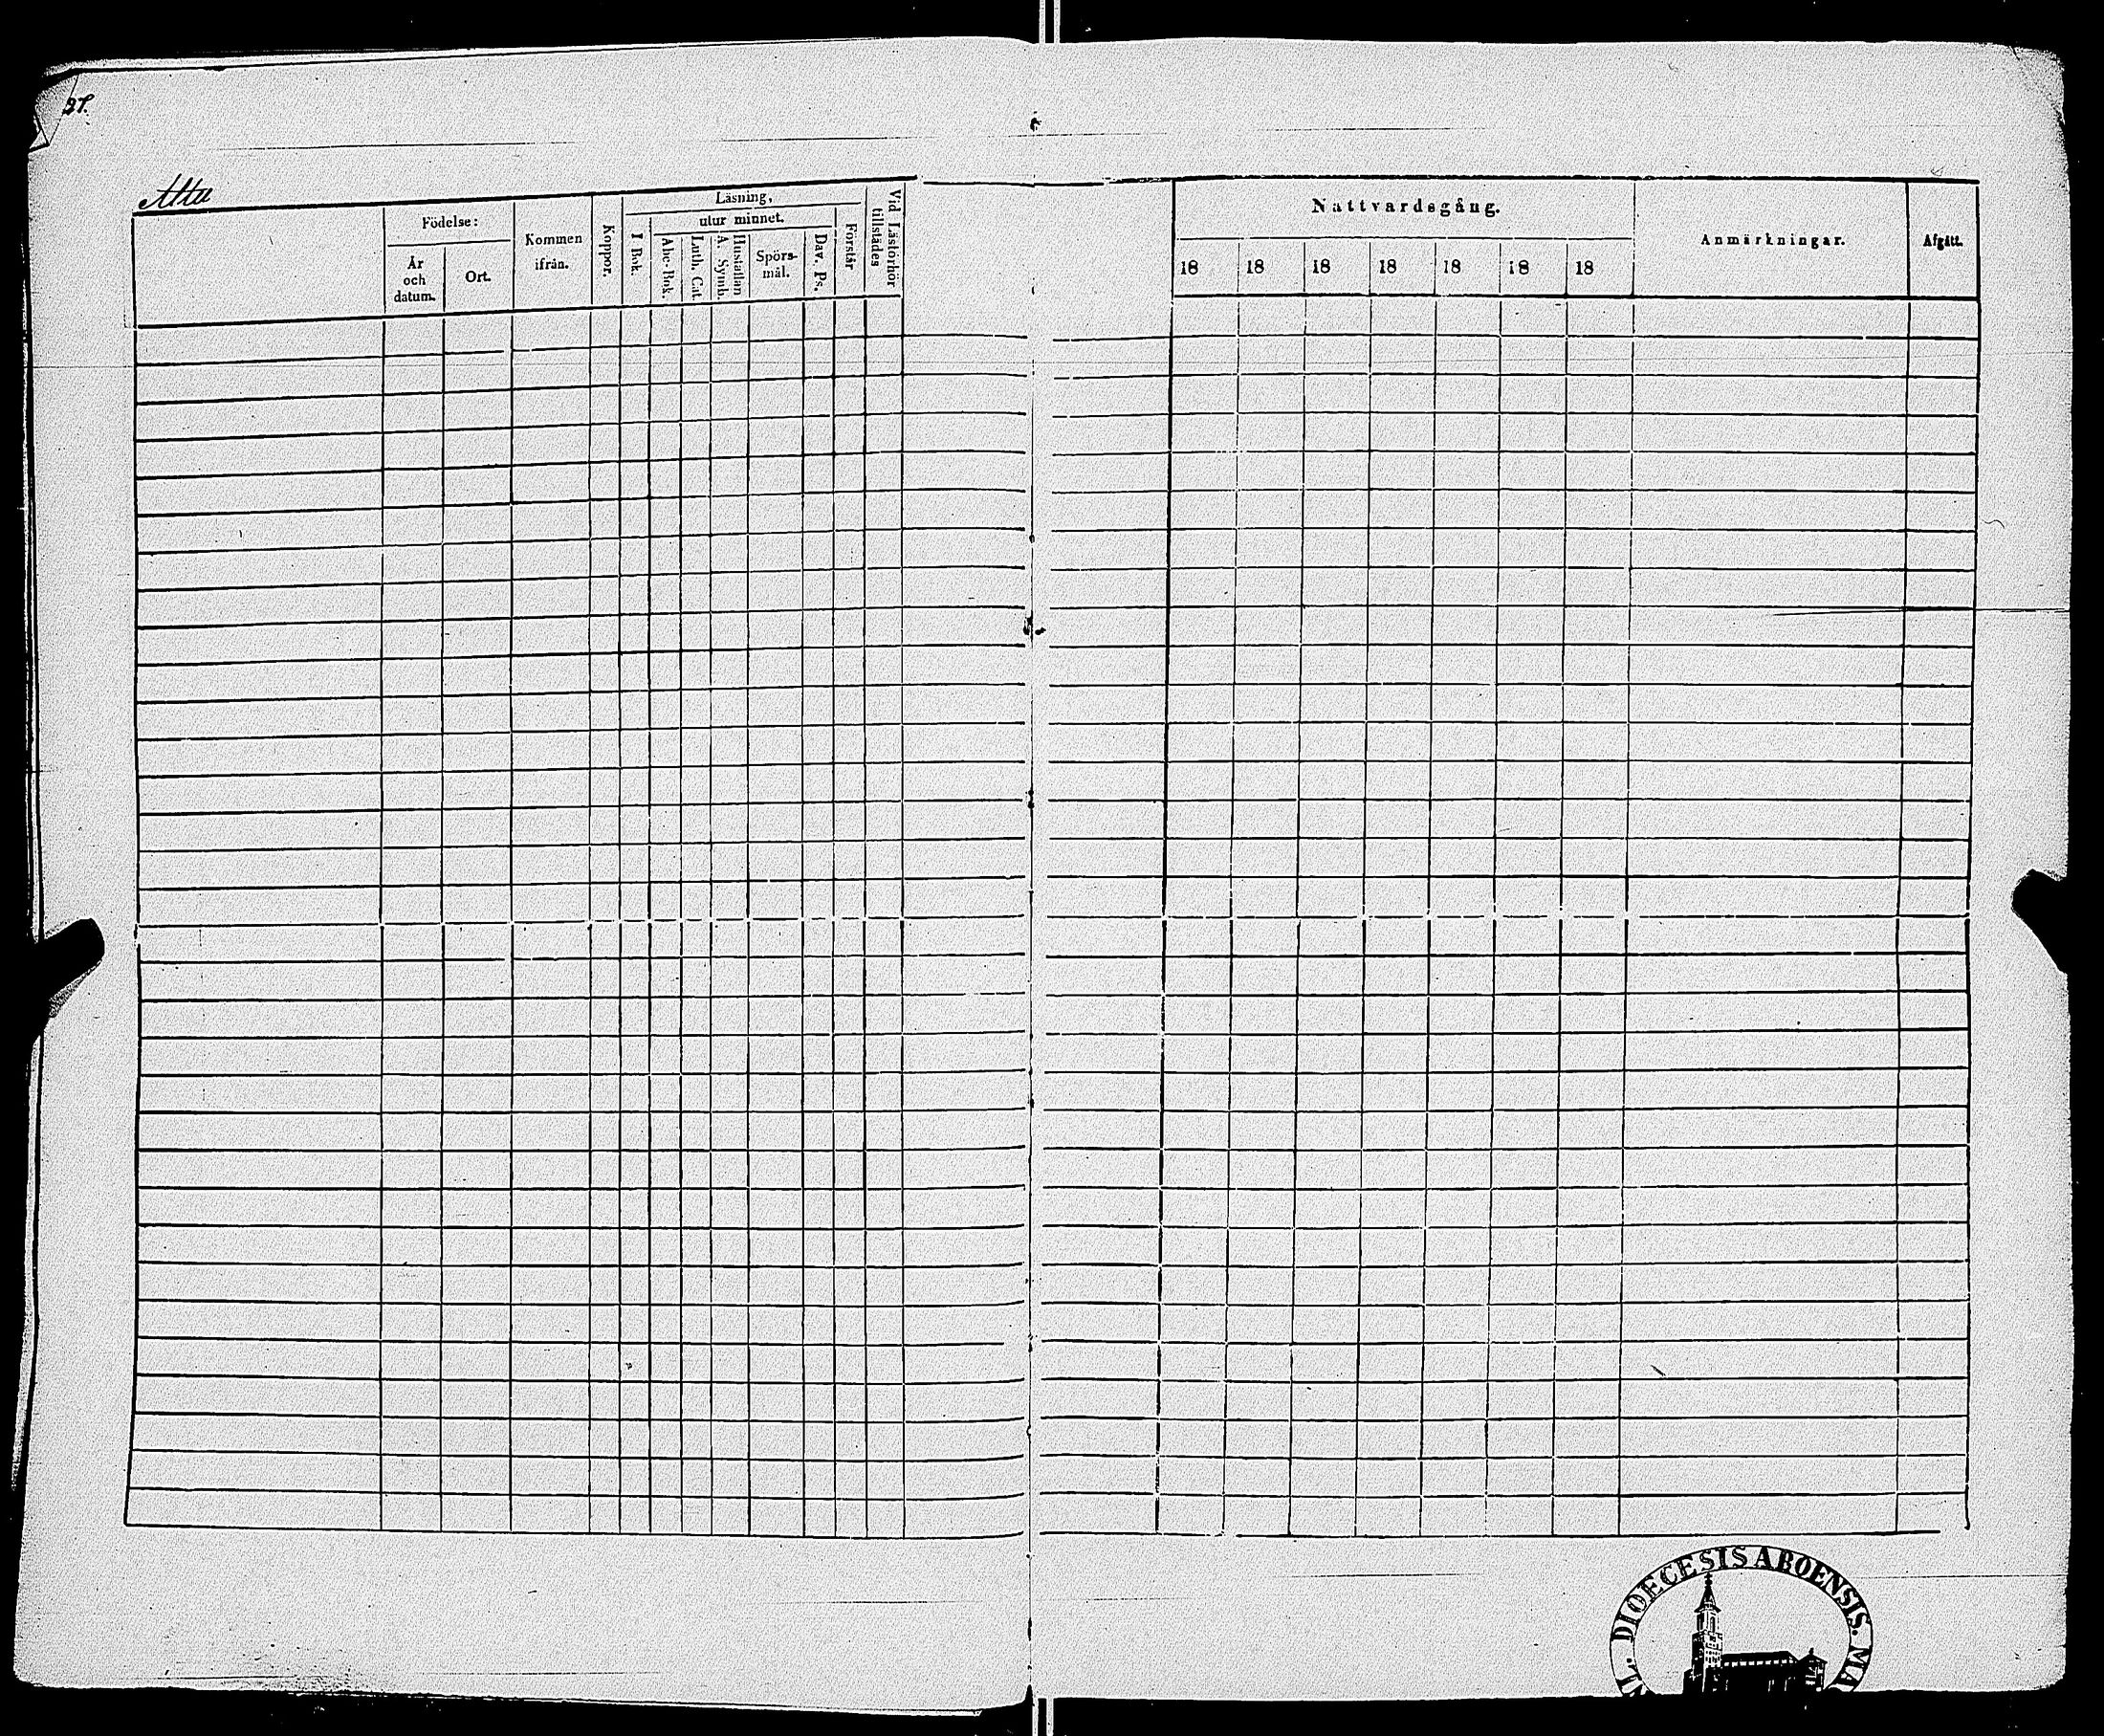 37.
Attu
Födelse:
År och datum.
Ort.
Kommen ifrån.
Koppor.
Läsning,
I Bok.
utur minnet.
Abc-Bok.
Luth. Cat.
Hustaflan A. Symb.
Spörs-mål.
Dav. Ps.
Förstår
Vid Läsförhör tillstädes
Nattvardsgång.
18 18 18 18 18 18 18
Anmärkningar.
Afgått.
DIOECESIS ABOENSIS. MA